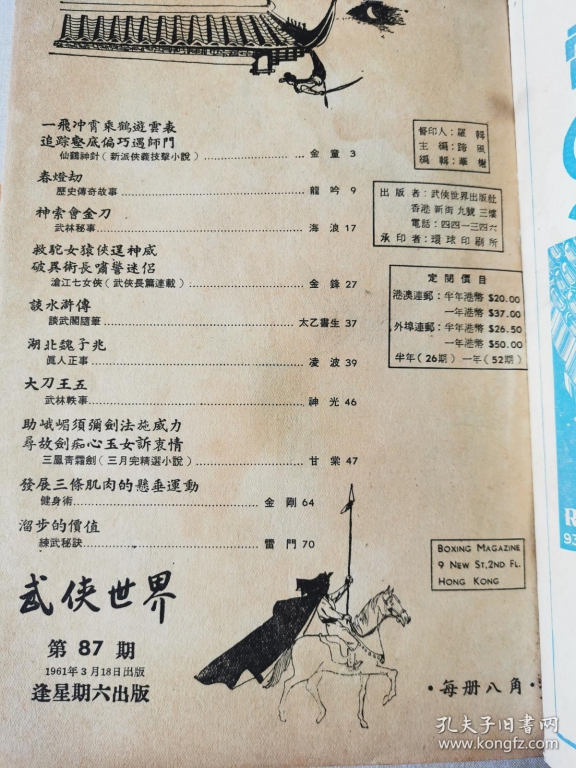 一飛冲霄乘鶴遊雲表
追踪壑底偏巧遇師門
仙鶴神針（新派俠義技擊小說）金童 3
春燈劫
歷史傳奇故事 龍吟 9
神索會金刀
武林秘事 海浪 17
救駝女猿俠逞神威
破異術長嘯警迷侶
滄江七女俠（武俠長篇連載）金鋒 27
談水滸傳
談武閣隨筆 太乙書生 37
湖北魏子兆
眞人正事 凌波 39
大刀王五
武林軼事 神光 46
助峨嵋須彌劍法施威力
尋故劍痴心玉女訴衷情
三鳳青霜劍（三月完精選小說）甘棠 47
發展三條肌肉的懸垂運動
健身術 金剛 64
溜步的價值
練武秘訣 雷門 70
武俠世界
第 87 期
1961年3月18日出版
逢星期六出版
督印人：羅輯
主編：蹄風
編輯：華樹
出版者：武俠世界出版社
香港新街九號三樓
電話：四四一三四六
承印者：環球印刷所
定閱價目
港澳連郵：半年港幣 $20.00
一年港幣 $37.00
外埠連郵：半年港幣 $26.50
一年港幣 $50.00
半年（26期）一年（52期）
BOXING MAGAZINE
9 NEW ST,2ND FL.
HONG KONG
·每册八角·
孔夫子旧書网
www.kongfz.com